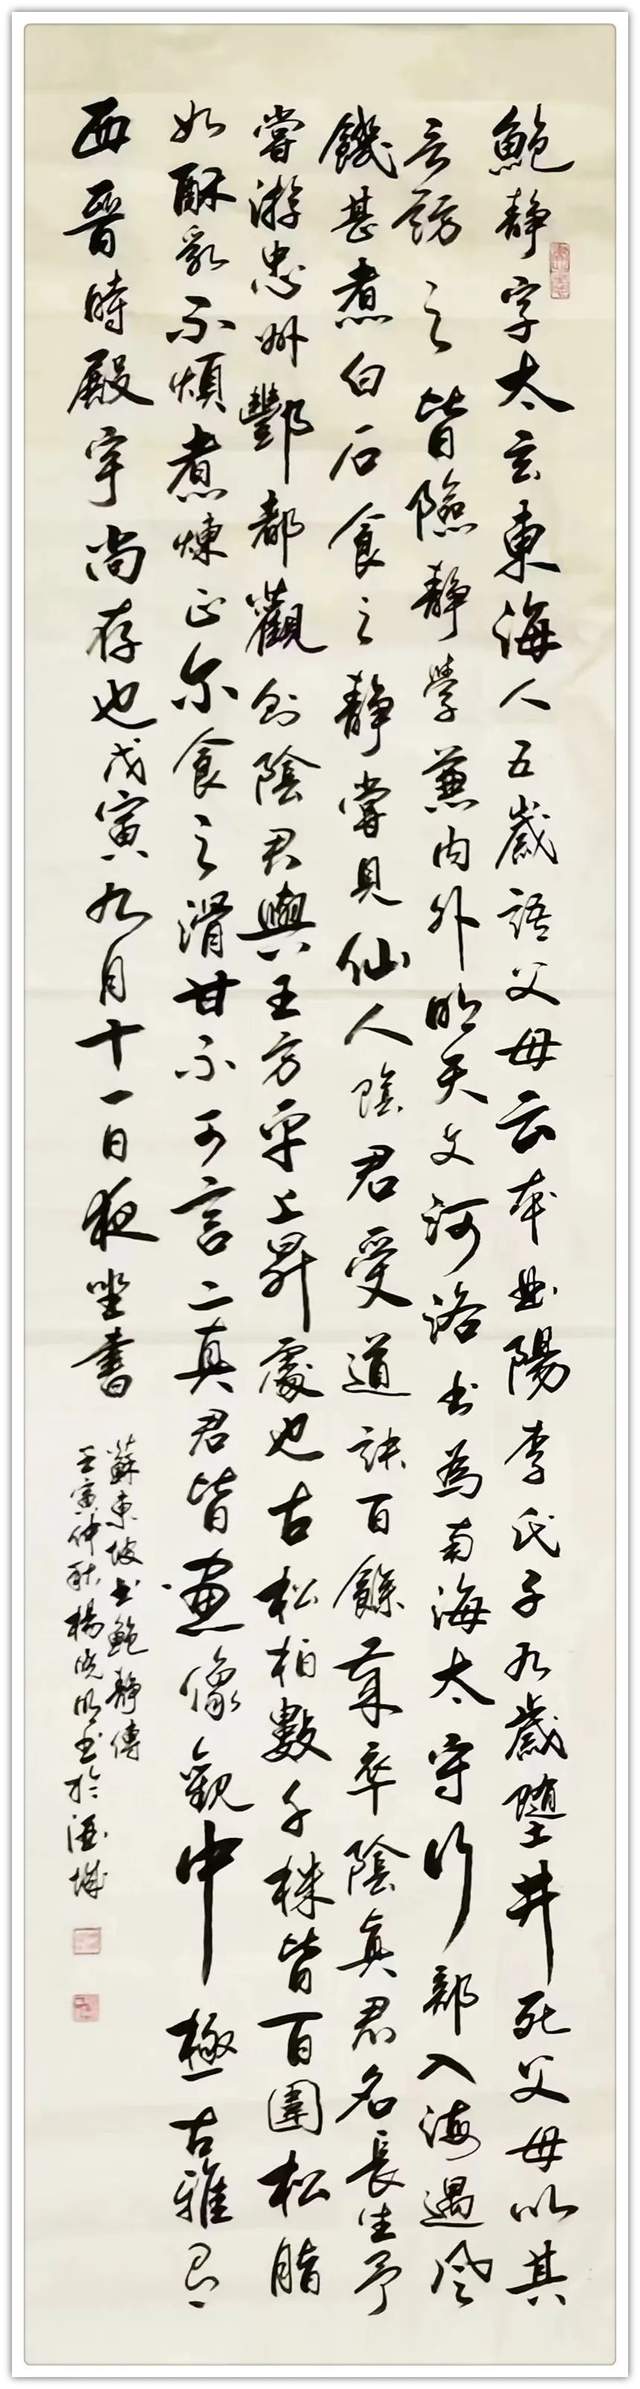 鮑靜字太玄東海人五歲語父母云本曲陽李氏子九歲墮井死父母以其
言訪之皆隂靜學兼內外明天文河洛書為南海太守行部入海遇風
饑甚煮白石食之靜嘗見仙人陰君受道訣百餘歲卒陰真君名長生予
嘗游忠州酆都觀則陰君與王方平上昇處也古松柏數千株皆百圍松脂
如酥乳不煩煮煉正尔食之滑甘不可言二真君皆畫像觀中極古雅云
西晉時殿宇尚存也戊寅九月十一日夜坐書
蘇東坡書鮑靜傳
壬寅仲秋楊曉明書於酒城